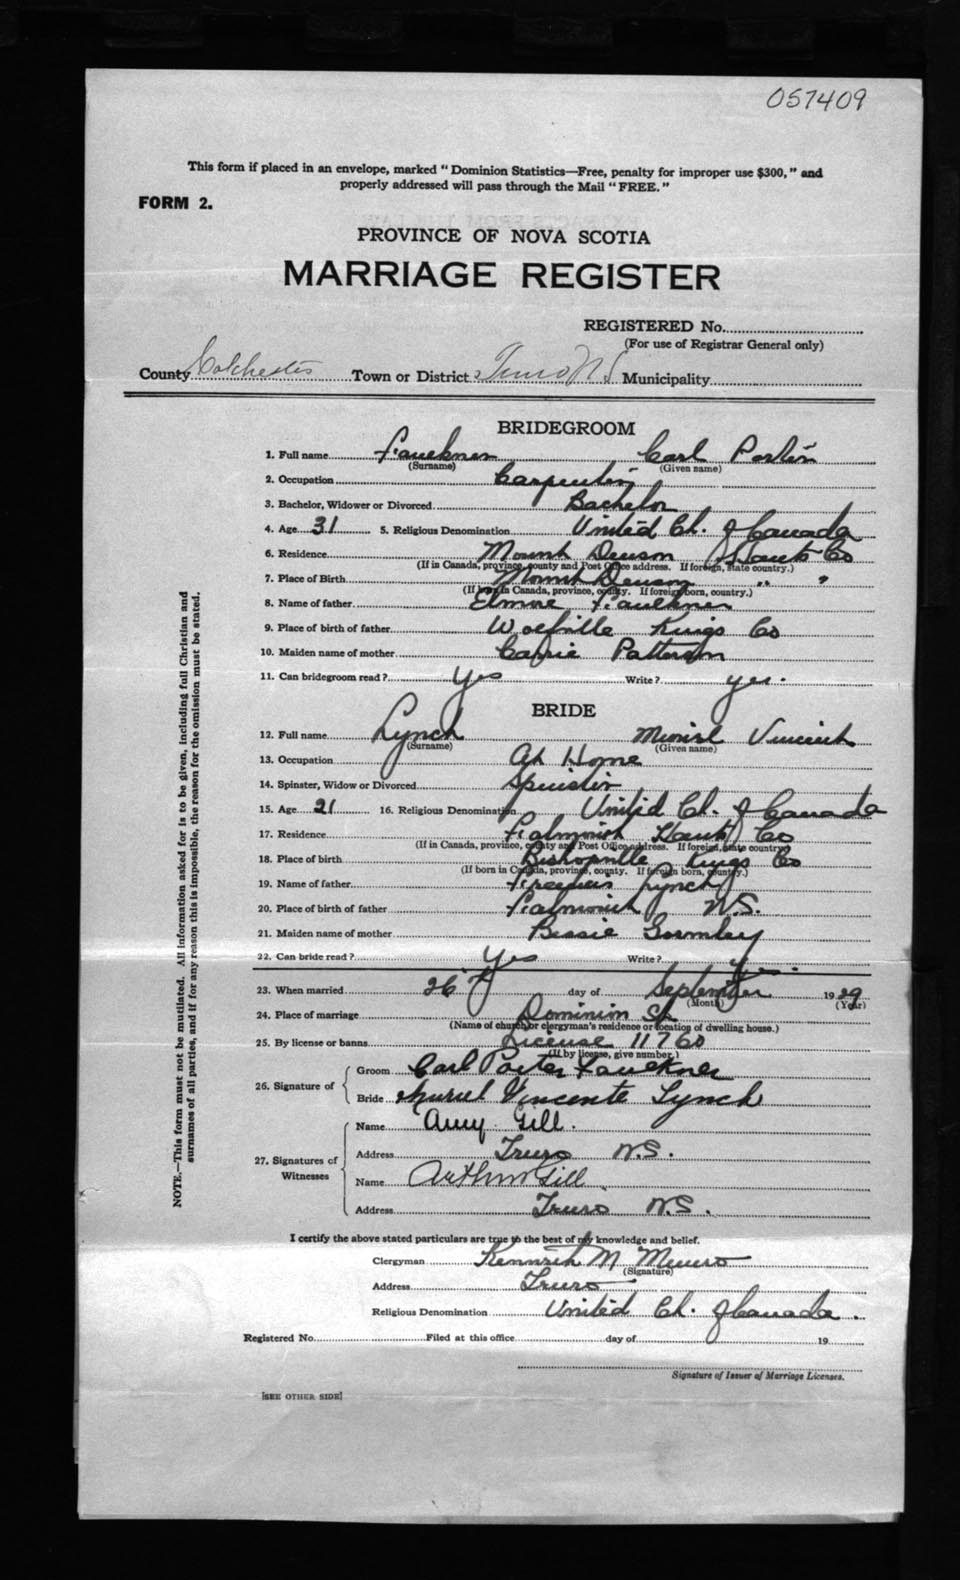 057409
This form if placed in an envelope, marked "Dominion Statistics—Free, penalty for improper use $300," and
properly addressed will pass through the Mail "FREE."
FORM 2.
PROVINCE OF NOVA SCOTIA
MARRIAGE REGISTER
REGISTERED No.
(For use of Registrar General only)
County Colchester Town or District Truro N S Municipality
BRIDEGROOM
1. Full name Faulkner Carl Porter
(Surname) (Given name)
2. Occupation Carpenter
3. Bachelor, Widower or Divorced Bachelor
4. Age 31 5. Religious Denomination United Ch. of Canada
6. Residence Mount Denson Hants Co
(If in Canada, province, county and Post Office address. If foreign, state country.)
7. Place of Birth Mount Denson " "
(If born in Canada, province, county. If foreign born, country.)
8. Name of father Elmore Faulkner
9. Place of birth of father Wolfville Kings Co
10. Maiden name of mother Carrie Patterson
11. Can bridegroom read? Yes Write? yes.
BRIDE
12. Full name Lynch Muriel Vincent
(Surname) (Given name)
13. Occupation At Home
14. Spinster, Widow or Divorced Spinster
15. Age 21 16. Religious Denomination United Ch. of Canada
17. Residence Falmouth Hants Co
(If in Canada, province, county and Post Office address. If foreign, state country)
18. Place of birth Bishopville Kings Co
(If born in Canada, province, county. If foreign born, country.)
19. Name of father Lynch
20. Place of birth of father Falmouth N.S.
21. Maiden name of mother Bessie Gormley
22. Can bride read? Yes Write? Yes.
23. When married 26 day of September 1929
(Month) (Year)
24. Place of marriage Dominion St
(Name of church or clergyman's residence or location of dwelling house.)
25. By license or banns License 11760
(If by license, give number.)
26. Signature of Groom Carl Porter Faulkner
Bride Muriel Vincente Lynch
27. Signatures of Witnesses Name Amy Gill.
Address Truro N.S.
Name Arthur Gill.
Address Truro N.S.
I certify the above stated particulars are true to the best of my knowledge and belief.
Clergyman Kenneth M Munro
(Signature)
Address Truro
Religious Denomination United Ch. of Canada.
Registered No. Filed at this office day of 19
Signature of Issuer of Marriage Licenses.
[SEE OTHER SIDE]
NOTE.—This form must not be mutilated. All information asked for is to be given, including full Christian and
surnames of all parties, and if for any reason this is impossible, the reason for the omission must be stated.